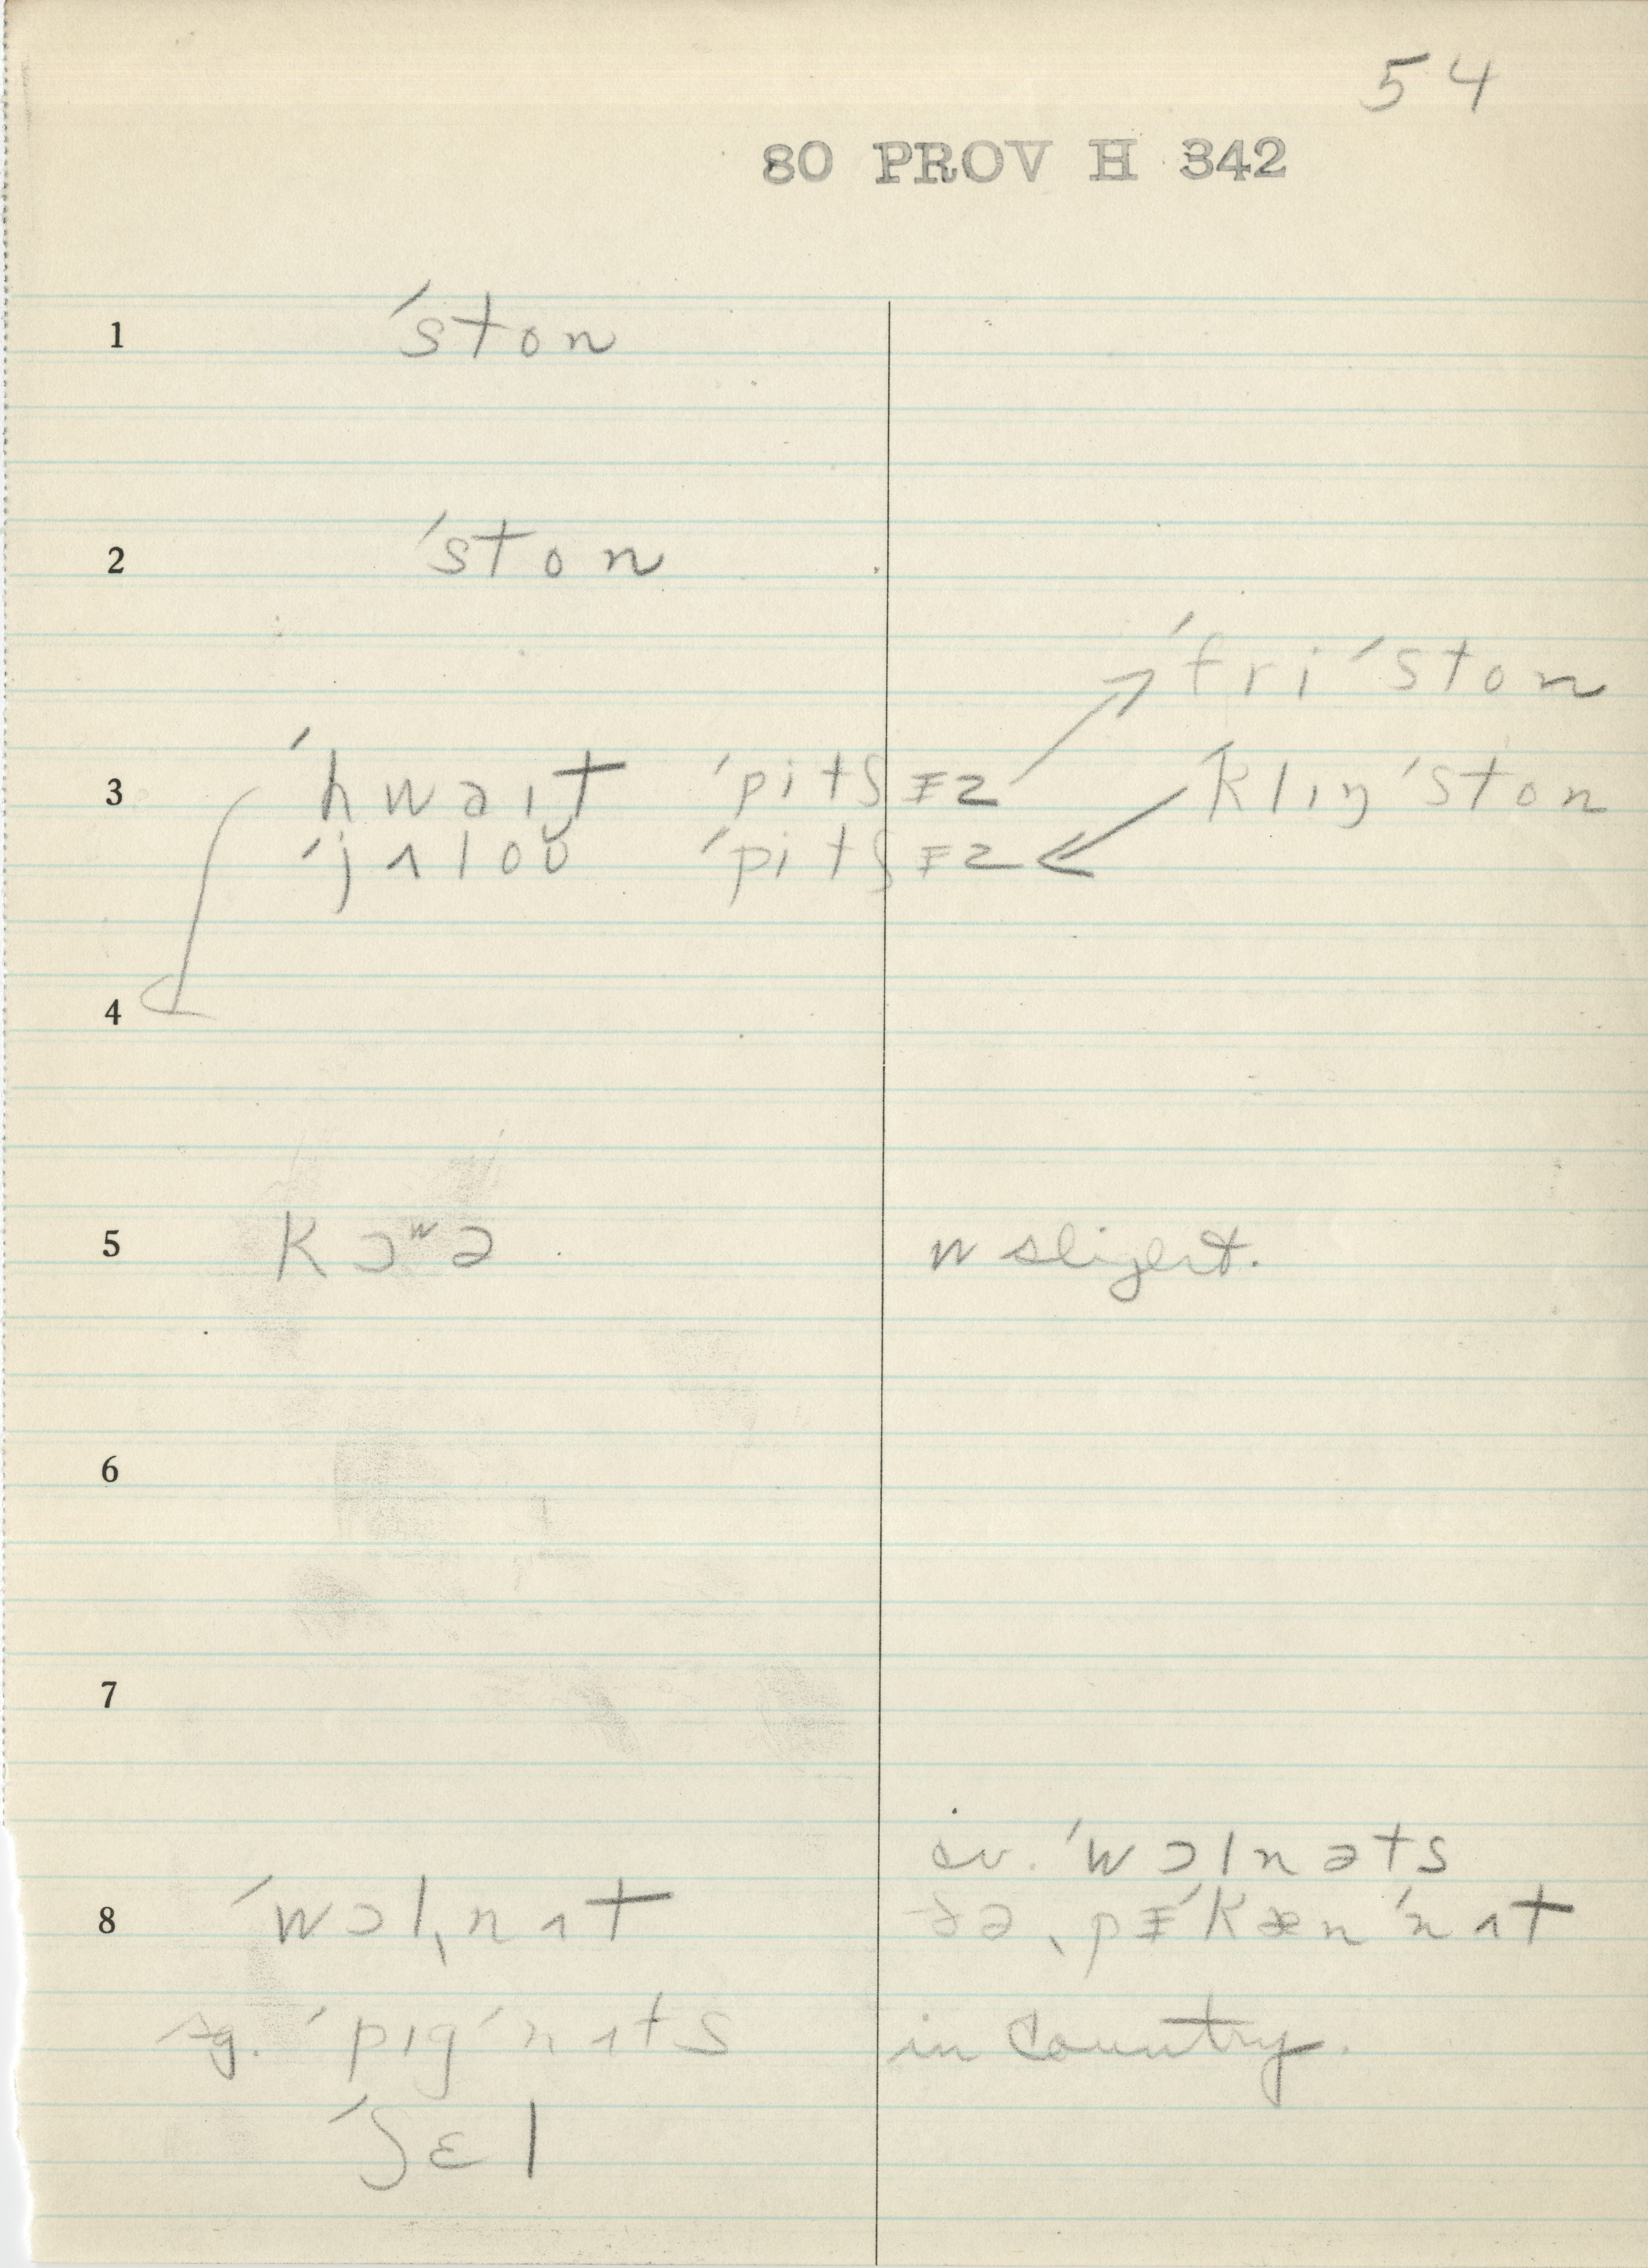 54
80 PROV H 342
1 ˈston
2 ˈston
ˈfriˈston
3 ˈhwaɪt ˈpitʃɪz ˈklɪŋˈston
ˈjʌloʊ ˈpitʃɪz
4
5 kɔʷə w sligert.
6
7
cv. ˈwɔlnəts
8 ˈwɔlˌnʌt ðə ˌpɪˈkænˈnʌt
sg. ˈpɪgˈnʌts in country.
ˈʃɛl